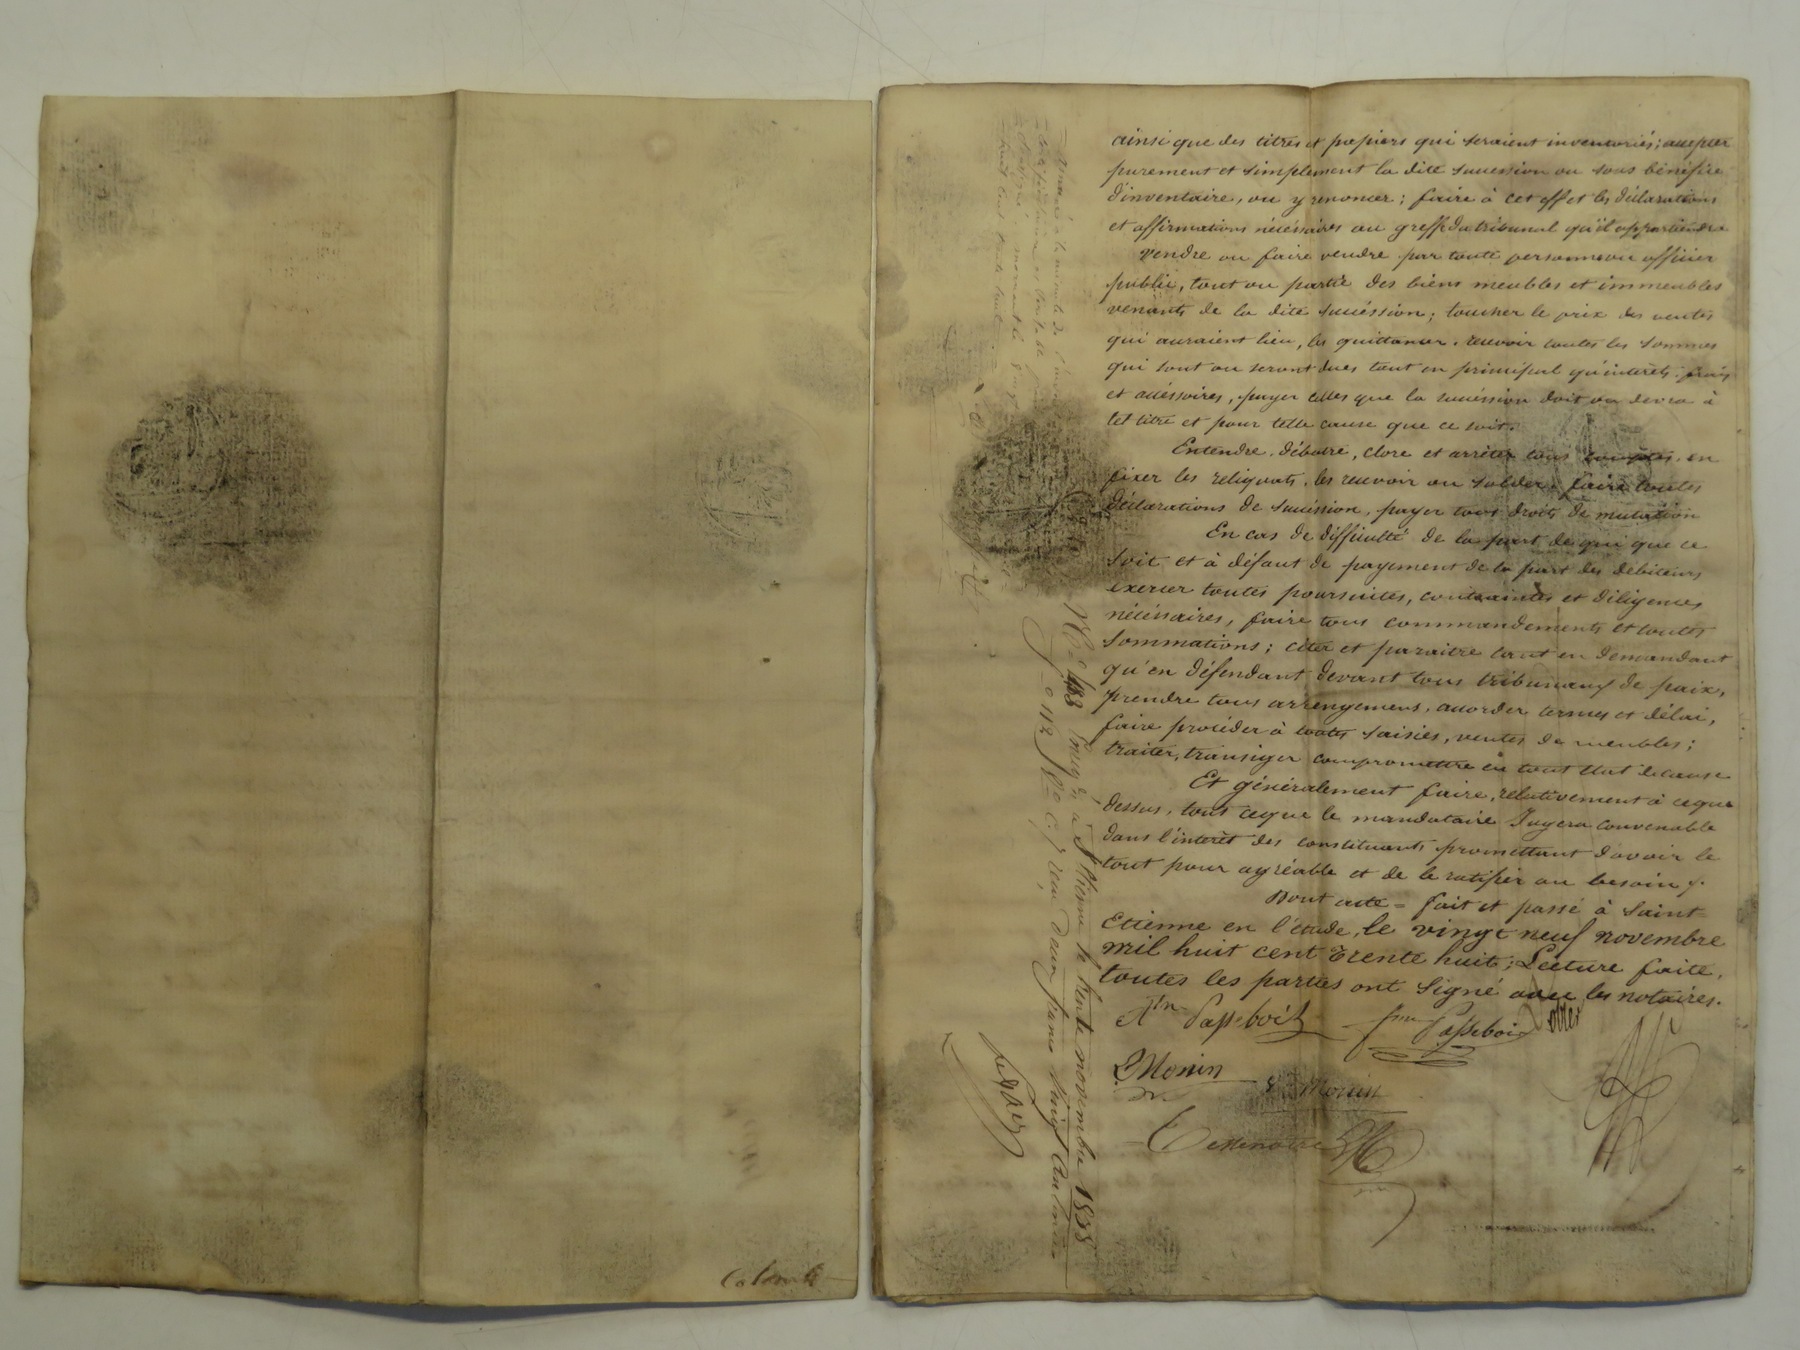 ainsi que des titres et papiers qui seraient inventoriés; accepter
purement et simplement la dite succession ou sous bénéfice
d'inventaire, ou y renoncer; faire à cet effet les déclarations
et affirmations nécéssaires au greffe du tribunal qu'il appartiendra
vendre ou faire vendre par toute personne ou officier
public, tout ou partie des biens meubles et immeubles
venants de la dite succéssion; toucher le prix des ventes
qui auraient lieu, les quittancer, recevoir toutes les sommes
qui sont ou seront dues tant en principal qu'intérets, frais
et accéssoires, payer celles que la succéssion doit ou devra à
tel titre et pour telle cause que ce soit.
Entendre, débattre, clore et arrêter tous comptes, en
fixer les reliquats, les recevoir ou solder, faire toutes
déclarations de succéssion, payer tous droits de mutation
En cas de difficulté de la part de qui que ce
soit et à défaut de payement de la part des débiteurs
exercer toutes poursuites, contraintes et diligences
nécéssaires, faire tous commandements et toutes
sommations; citer et paraitre tant en demandant
qu'en défendant devant tous tribunaux de paix,
prendre tous arrengemens, accorder termes et délai,
faire procéder à toutes saisies, ventes de meubles;
traiter, transiger compromettre en tout état de cause
Et généralement faire, relativement à ce que
dessus, tout ce que le mandataire Jugera convenable
dans l'intérêt des constituants promettant d'avoir le
tout pour agréable et de le ratifier au besoin
Dont acte = fait et passé à Saint
Etienne en l'étude, le vingt neuf novembre
mil huit cent trente huit; Lecture faite,
toutes les parties ont signé avec les notaires.
Passeboi
Passeboi
Monin
Monin
Testenoire
Enregé à St Etienne le trente novembre 1838
reçu deux francs vingt centimes
Colomb